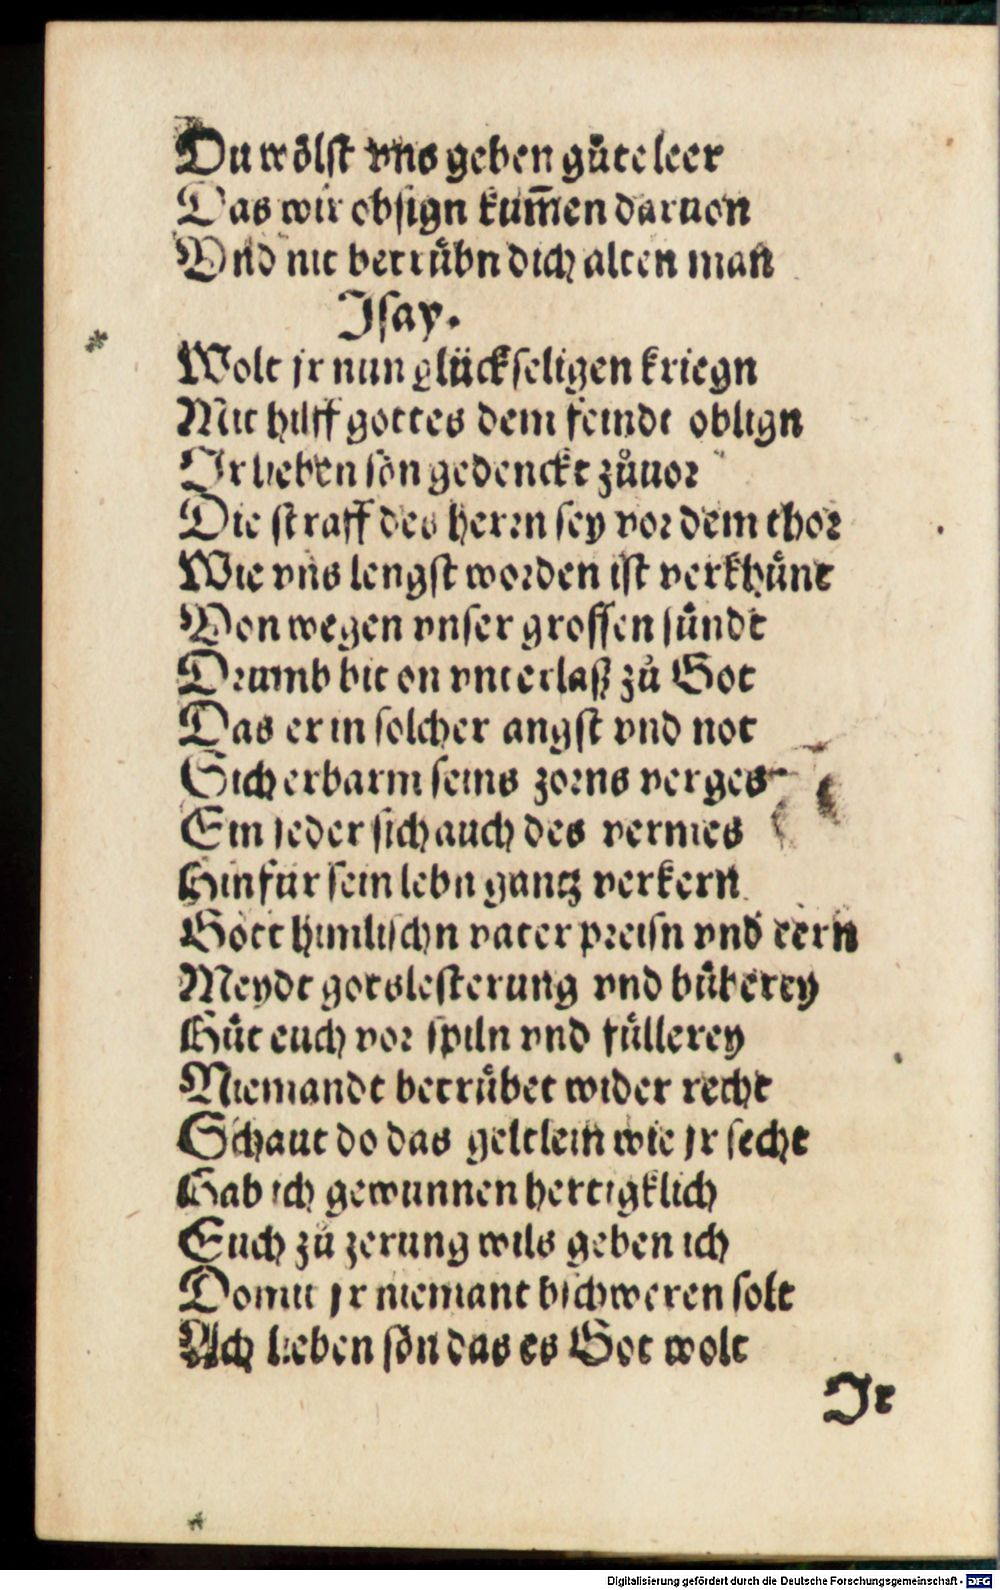 Du wölst vns geben gůte leer
Das wir obsign kum̃en daruon
Vnd nit betrübn dich alten man
Isay.
Wolt jr nun glückseligen kriegn
Mit hilff gottes dem feindt oblign
Ir lieben sön gedenckt zůuor
Die straff des herrn sey vor dem thor
Wie vns lengst worden ist verkhünt
Von wegen vnser grossen sündt
Drumb bit on vnterlaß zů Got
Das er in solcher angst vnd not
Sich erbarm seins zorns verges
Ein jeder sich auch des vermes
Hinfür sein lebn gantz verkern
Gott himlischn vater preisn vnd eern
Meydt gotslesterung vnd bůberey
Hůt euch vor spiln vnd füllerey
Niemandt betrübet wider recht
Schaut do das geltlein wie jr secht
Hab ich gewunnen hertigklich
Euch zů zerung wils geben ich
Domit jr niemant bschweren solt
Ach lieben sön das es Got wolt
Ir
Digitalisierung gefördert durch die Deutsche Forschungsgemeinschaft - DFG